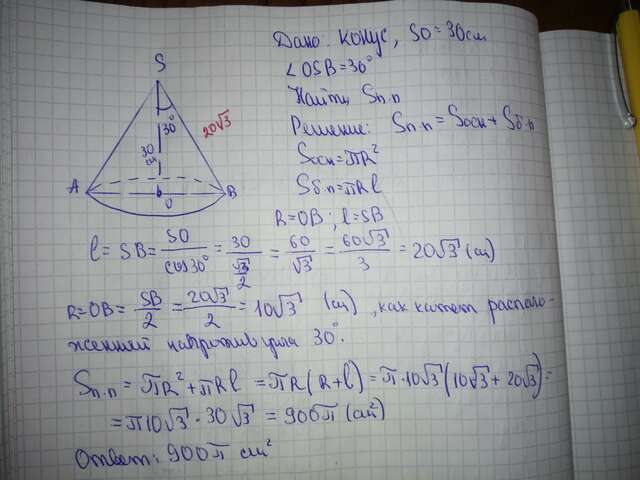 Дано: конус, SO = 30 см
∠OSB = 30°
Найти Sп.п
Решение: Sп.п = Sосн + Sб.п
Sосн = πR²
Sб.п = πRl
R = OB; l = SB
S
30°
30
см
20√3
A
O
B
l = SB = SO/cos30° = 30/(√3/2) = 60/√3 = 60√3/3 = 20√3 (см)
R = OB = SB/2 = 20√3/2 = 10√3 (см), как катет располо-
женный напротив угла 30°.
Sп.п = πR² + πRl = πR(R+l) = π·10√3(10√3 + 20√3) =
= π10√3 · 30√3 = 900π (см²)
Ответ: 900π см²